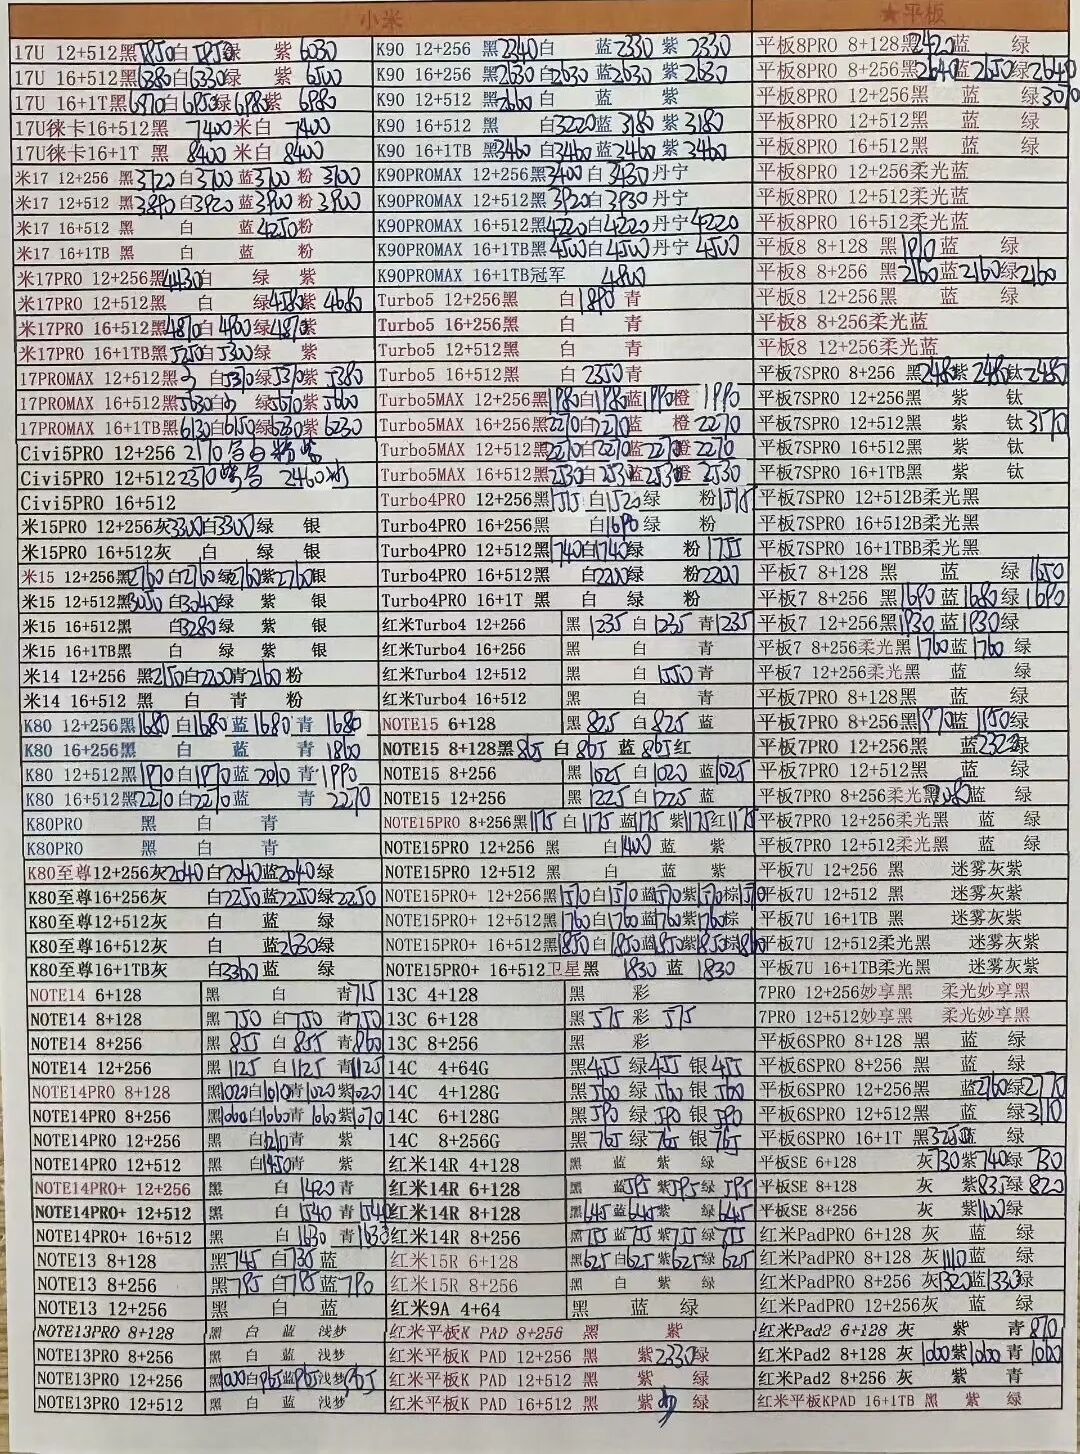 小米
17U 12+512黑5850白5850绿 紫6030
17U 16+512黑6380白6330绿 紫6500
17U 16+1T黑6970白6950绿6980紫6980
17U徕卡16+512黑 7400米白 7400
17U徕卡16+1T 黑 8400 米白 8400
米17 12+256 黑3720白3700蓝3700 粉 3700
米17 12+512 黑3890白3920蓝3900粉3900
米17 16+512 黑 白 蓝4250粉
米17 16+1TB 黑 白 蓝 粉
米17PRO 12+256黑4430白 绿 紫
米17PRO 12+512黑 白 绿4580紫 4680
米17PRO 16+512黑4870白4900绿4870紫
米17PRO 16+1TB黑5250白5300绿 紫
17PROMAX 12+512黑 白5370绿5370紫5380
17PROMAX 16+512黑5630白 绿5670紫5600
17PROMAX 16+1TB黑6130白6150绿6230紫6230
Civi5PRO 12+256 2170
Civi5PRO 12+512 2370 2460
Civi5PRO 16+512
米15PRO 12+256灰3300白3300绿 银
米15PRO 16+512灰 白 绿 银
米15 12+256黑2760白2760绿2760紫2760银
米15 12+512黑3050白3040绿 紫 银
米15 16+512黑 白3280绿 紫 银
米15 16+1TB黑 白 绿 紫 银
米14 12+256 黑2150白2200青2160粉
米14 16+512 黑 白 青 粉
K80 12+256黑1680白1680蓝1680青 1680
K80 16+256黑 白 蓝 青 1860
K80 12+512黑1970白1970蓝2010青1990
K80 16+512黑2270白2270蓝 青 2270
K80PRO 黑 白 青
K80PRO 黑 白 青
K80至尊12+256灰2040白2040蓝2040绿
K80至尊16+256灰 白2250蓝2250绿2250
K80至尊12+512灰 白 蓝 绿
K80至尊16+512灰 白 蓝2630绿
K80至尊16+1TB灰 白3360蓝 绿
NOTE14 6+128 黑 白 青715
NOTE14 8+128 黑 750 白 750 青750
NOTE14 8+256 黑 855 白 855 青860
NOTE14 12+256 黑 1125 白 1125 青1125
NOTE14PRO 8+128 黑1020白1010青1020紫1020
NOTE14PRO 8+256 黑1060白1060青1060紫1070
NOTE14PRO 12+256 黑 白1210青 紫
NOTE14PRO 12+512 黑 白1450青 紫
NOTE14PRO+ 12+256 黑 白 1420 青
NOTE14PRO+ 12+512 黑 白 1540 青 1540
NOTE14PRO+ 16+512 黑 白 1630 青 1630
NOTE13 8+128 黑745 白735蓝
NOTE13 8+256 黑795 白795蓝790
NOTE13 12+256 黑 白 蓝
NOTE13PRO 8+128 黑 白 蓝 浅梦
NOTE13PRO 8+256 黑 白 蓝 浅梦
NOTE13PRO 12+256 黑1000白965蓝965浅梦965
NOTE13PRO 12+512 黑 白 蓝 浅梦
K90 12+256 黑2340白 蓝2330 紫 2330
K90 16+256 黑2630白2630蓝2630 紫 2630
K90 12+512 黑2660白 蓝 紫
K90 16+512 黑 白3220蓝 3180 紫 3180
K90 16+1TB 黑3460白3460蓝3460紫 3460
K90PROMAX 12+256黑3400白3430丹宁
K90PROMAX 12+512黑3920白3930丹宁
K90PROMAX 16+512黑4220白4220丹宁4220
K90PROMAX 16+1TB黑4500白4500丹宁4500
K90PROMAX 16+1TB冠军 4800
Turbo5 12+256黑 白1890青
Turbo5 16+256黑 白 青
Turbo5 12+512黑 白 青
Turbo5 16+512黑 白 2350青
Turbo5MAX 12+256黑1980白1980蓝1990橙 1990
Turbo5MAX 16+256黑2270白2270蓝 橙 2270
Turbo5MAX 12+512黑2270白2270蓝2270橙2270
Turbo5MAX 16+512黑2530白2530蓝2530橙2530
Turbo4PRO 12+256黑1515白1520绿 粉1515
Turbo4PRO 16+256黑 白1690绿 粉
Turbo4PRO 12+512黑1740白1740绿 粉1755
Turbo4PRO 16+512黑 白2200绿 粉2200
Turbo4PRO 16+1T 黑 白 绿 粉
红米Turbo4 12+256 黑 1235 白 1235 青1235
红米Turbo4 16+256 黑 白 青
红米Turbo4 12+512 黑 1550青
红米Turbo4 16+512 黑 白 青
NOTE15 6+128 黑 825 白 825 蓝
NOTE15 8+128黑865 白 865 蓝 865红
NOTE15 8+256 黑 1025 白 1020 蓝1025
NOTE15 12+256 黑 1225 白 1225 蓝
NOTE15PRO 8+256黑1175白1175蓝1175紫1175红1175
NOTE15PRO 12+256 黑 白1400蓝 紫
NOTE15PRO 12+512 黑 白 蓝 紫
NOTE15PRO+ 12+256黑1570白1570蓝1570紫1570棕1570
NOTE15PRO+ 12+512黑1760白1760蓝1760紫1760棕
NOTE15PRO+ 16+512黑1850白1850蓝1850紫1850棕1860
NOTE15PRO+ 16+512卫星黑 1830 蓝 1830
13C 4+128 黑 彩
13C 6+128 黑 575 彩 575
13C 8+256 黑 彩
14C 4+64G 黑455绿455银455
14C 4+128G 黑560绿560银560
14C 6+128G 黑590绿590银590
14C 8+256G 黑765绿765银765
红米14R 4+128 黑 蓝 紫 绿
红米14R 6+128 黑 蓝595紫595绿595
红米14R 8+128 黑645蓝645紫 绿645
红米14R 8+256 黑755蓝755紫755绿755
红米15R 6+128 黑625白625紫625绿625
红米15R 8+256 黑 白 紫 绿
红米9A 4+64 黑 蓝 绿
红米平板K PAD 8+256 黑 紫
红米平板K PAD 12+256 黑 紫2330绿
红米平板K PAD 16+512 黑 紫 绿
★平板
平板8PRO 8+128黑2420蓝 绿
平板8PRO 8+256黑2640蓝2650绿2640
平板8PRO 12+256黑 蓝 绿3070
平板8PRO 12+512黑 蓝 绿
平板8PRO 16+512黑 蓝 绿
平板8PRO 12+256柔光蓝
平板8PRO 12+512柔光蓝
平板8PRO 16+512柔光蓝
平板8 8+128 黑1910蓝 绿
平板8 8+256 黑2160蓝2160绿2160
平板8 12+256黑 蓝 绿
平板8 8+256柔光蓝
平板8 12+256柔光蓝
平板7SPRO 8+256 黑2480紫 2480钛2480
平板7SPRO 12+256黑 紫 钛
平板7SPRO 12+512黑 紫 钛3170
平板7SPRO 16+512黑 紫 钛
平板7SPRO 16+1TB黑 紫 钛
平板7SPRO 12+512B柔光黑
平板7SPRO 16+512B柔光黑
平板7SPRO 16+1TBB柔光黑
平板7 8+128 黑 蓝 绿 1650
平板7 8+256 黑1690蓝1680绿1690
平板7 12+256黑1930蓝1930绿
平板7 8+256柔光黑1760蓝1760 绿
平板7 12+256柔光黑 蓝 绿
平板7PRO 8+128黑 蓝 绿
平板7PRO 8+256黑1970蓝 1950绿
平板7PRO 12+256黑 蓝2320绿
平板7PRO 12+512黑 蓝 绿
平板7PRO 8+256柔光黑2080蓝 绿
平板7PRO 12+256柔光黑 蓝 绿
平板7PRO 12+512柔光黑 蓝 绿
平板7U 12+256 黑 迷雾灰紫
平板7U 12+512 黑 迷雾灰紫
平板7U 16+1TB 黑 迷雾灰紫
平板7U 12+512柔光黑 迷雾灰紫
平板7U 16+1TB柔光黑 迷雾灰紫
7PRO 12+256妙享黑 柔光妙享黑
7PRO 12+512妙享黑 柔光妙享黑
平板6SPRO 8+128 黑 蓝 绿
平板6SPRO 8+256 黑 蓝 绿
平板6SPRO 12+256黑 蓝2760绿2770
平板6SPRO 12+512黑 蓝 绿3110
平板6SPRO 16+1T 黑3250蓝 绿
平板SE 6+128 灰730紫740绿 730
平板SE 8+128 灰 紫835绿820
平板SE 8+256 灰 紫1100绿
红米PadPRO 6+128 灰 蓝 绿
红米PadPRO 8+128 灰1110蓝 绿
红米PadPRO 8+256 灰1320蓝1330绿
红米PadPRO 12+256灰 蓝 绿
红米Pad2 6+128 灰 紫 青870
红米Pad2 8+128 灰 1000紫1000 青 1000
红米Pad2 8+256 灰 紫 青
红米平板KPAD 16+1TB 黑 紫 绿